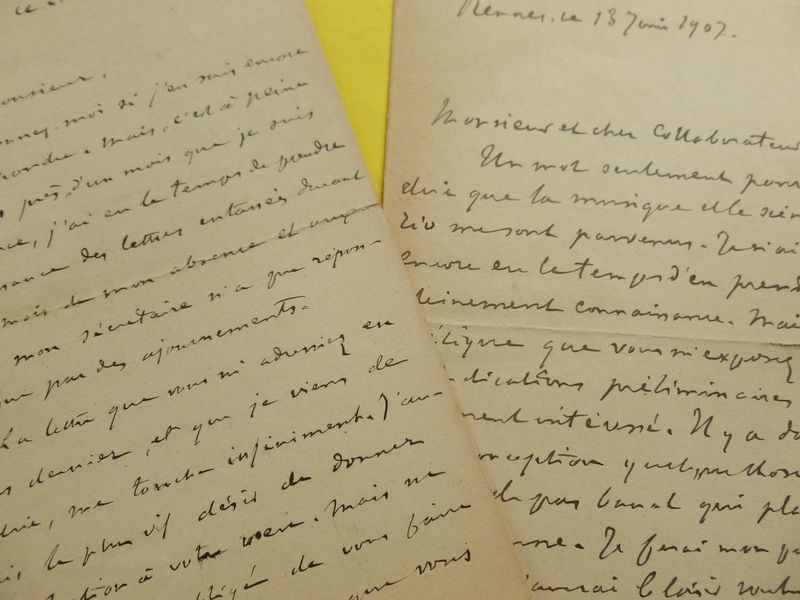 ce
onsieur,
nnez-moi si j'en suis encore
pondre. Mais, c'est à peine
près d'un mois que je suis
nce, j'ai eu le temps de prendre
ssance des lettres entassées durant
mois de mon absence et auxq
mon secrétaire n'a que répon-
que par des ajournements.
La lettre que vous m'adressiez en
s dernier, et que je viens de
, me touche infiniment. J'au-
is, le plus vif désir de donner
ction à votre . Mais ne
obligé de vous faire
que vous
Rennes, ce 13 Juin 1907.
Monsieur et cher Collaborateur
Un mot seulement pour
dire que la musique et le scén
rio me sont parvenus. Je n'ai
encore eu le temps d'en prend
leinement connaissance. Mais
tique que vous m'exposez
dications préliminaires
ment intéressé. Il y a da
onception quelque chose
de pas banal qui pla
. Je ferai mon p
j'aurai le loisir voul